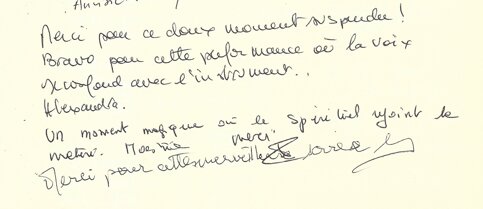 Merci pour ce doux moment suspendu !
Bravo pour cette performance où la voix
se confond avec l'instrument..
Alexandra.
Un moment magique où le spirituel rejoint la
matière. Maestria merci.
Merci pour cette merveilleuse soirée